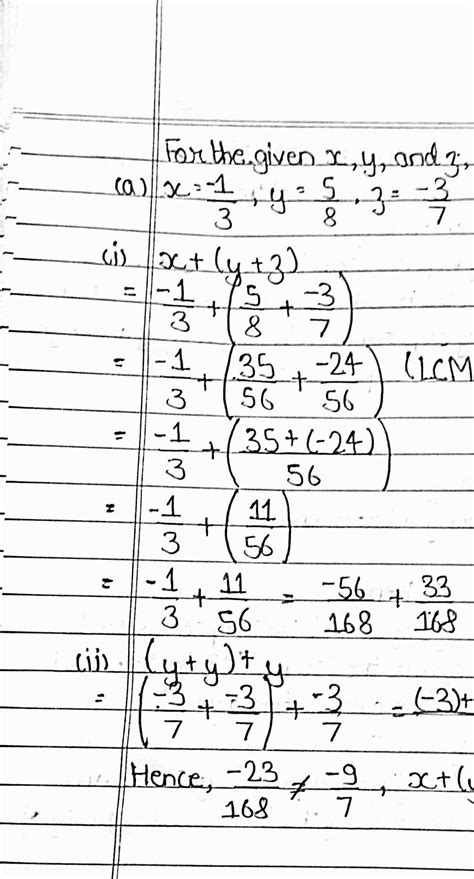 For the given x, y, and z,
(a) x = -1/3, y = 5/8, z = -3/7
(i) x + (y + z)
= -1/3 + (5/8 + -3/7)
= -1/3 + (35/56 + -24/56) (LCM
= -1/3 + (35 + (-24)/56)
= -1/3 + (11/56)
= -1/3 + 11/56 = -56/168 + 33/168
(ii) (y + y) + y
= (-3/7 + -3/7) + -3/7 = (-3)+
Hence, -23/168 ≠ -9/7, x + (y